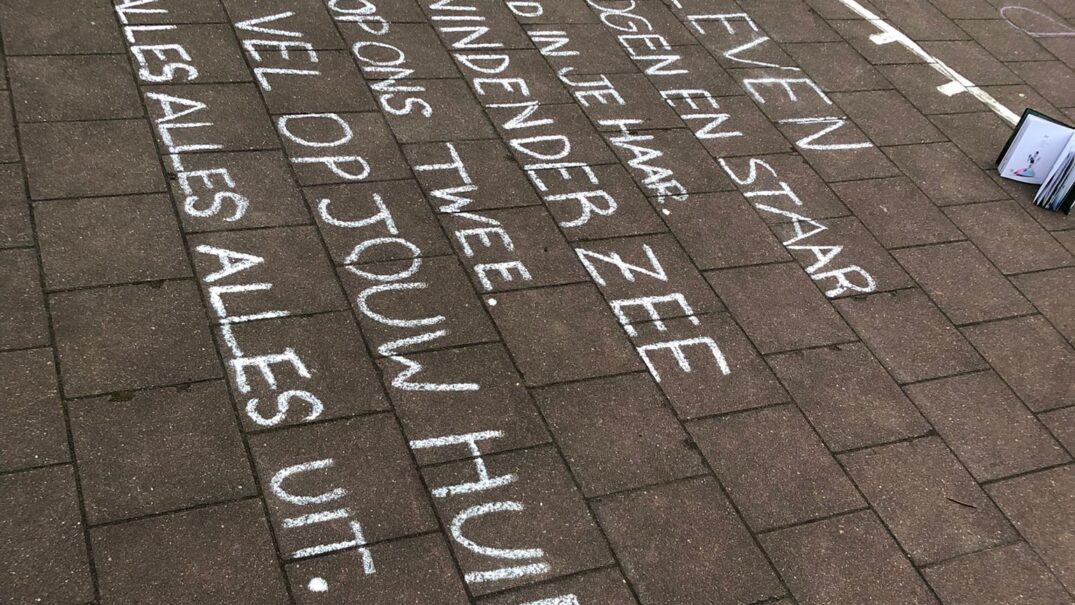 LEVEN EVEN
OGEN EN STAAR
IN JE HAAR.
ZEE
OP ONS TWEE.
VEL OP JOUW HUI
ALLES ALLES ALLES UIT.